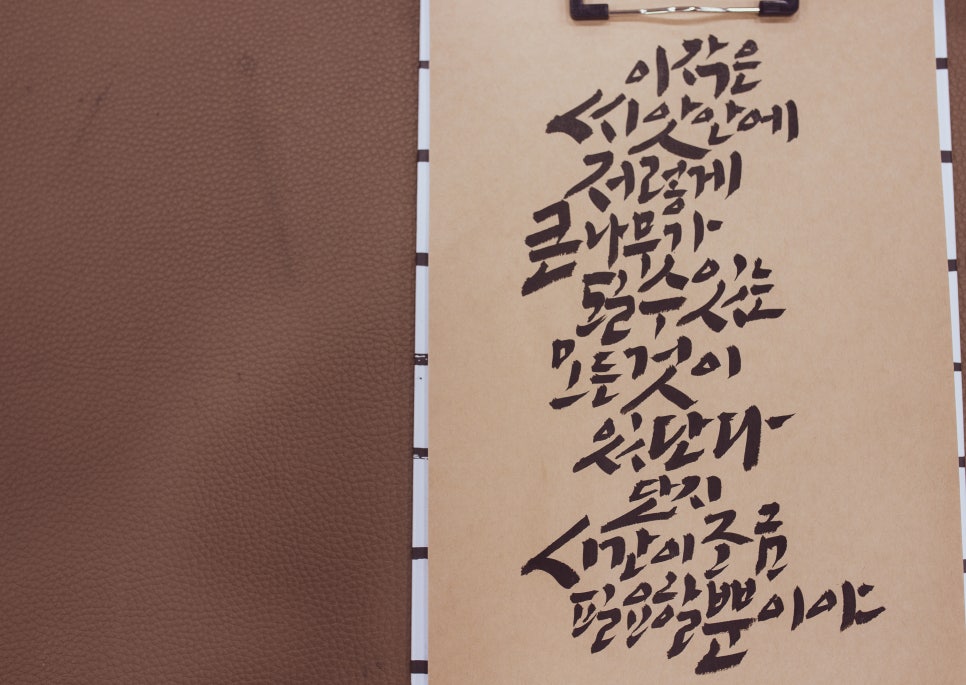 이 작은
씨앗 안에
저렇게
큰 나무가
될 수 있는
모든 것이
있단다
단지
시간이 조금
필요할 뿐이야